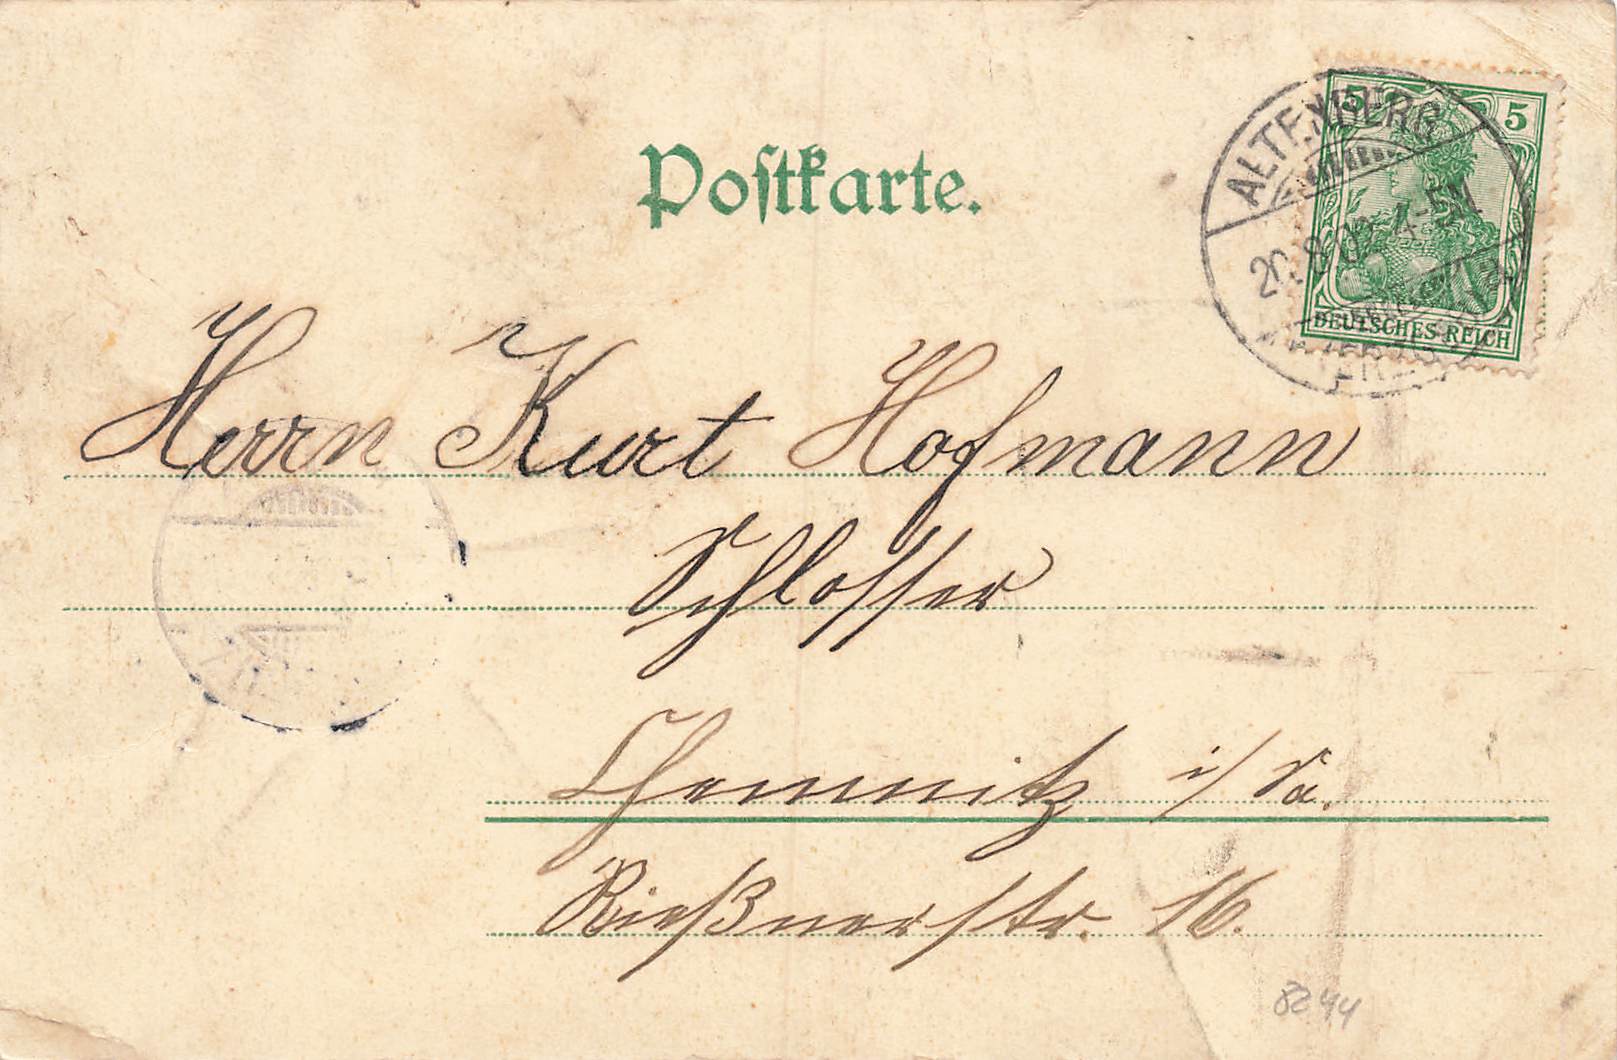 Postkarte.
5 5
ALTENBERG
20.8.02 4-5N
ERZGEBIRGE
DEUTSCHES REICH
Herrn Kurt Hofmann
Schlosser
Chemnitz i/Sa.
Rießnerstr. 16.
8244